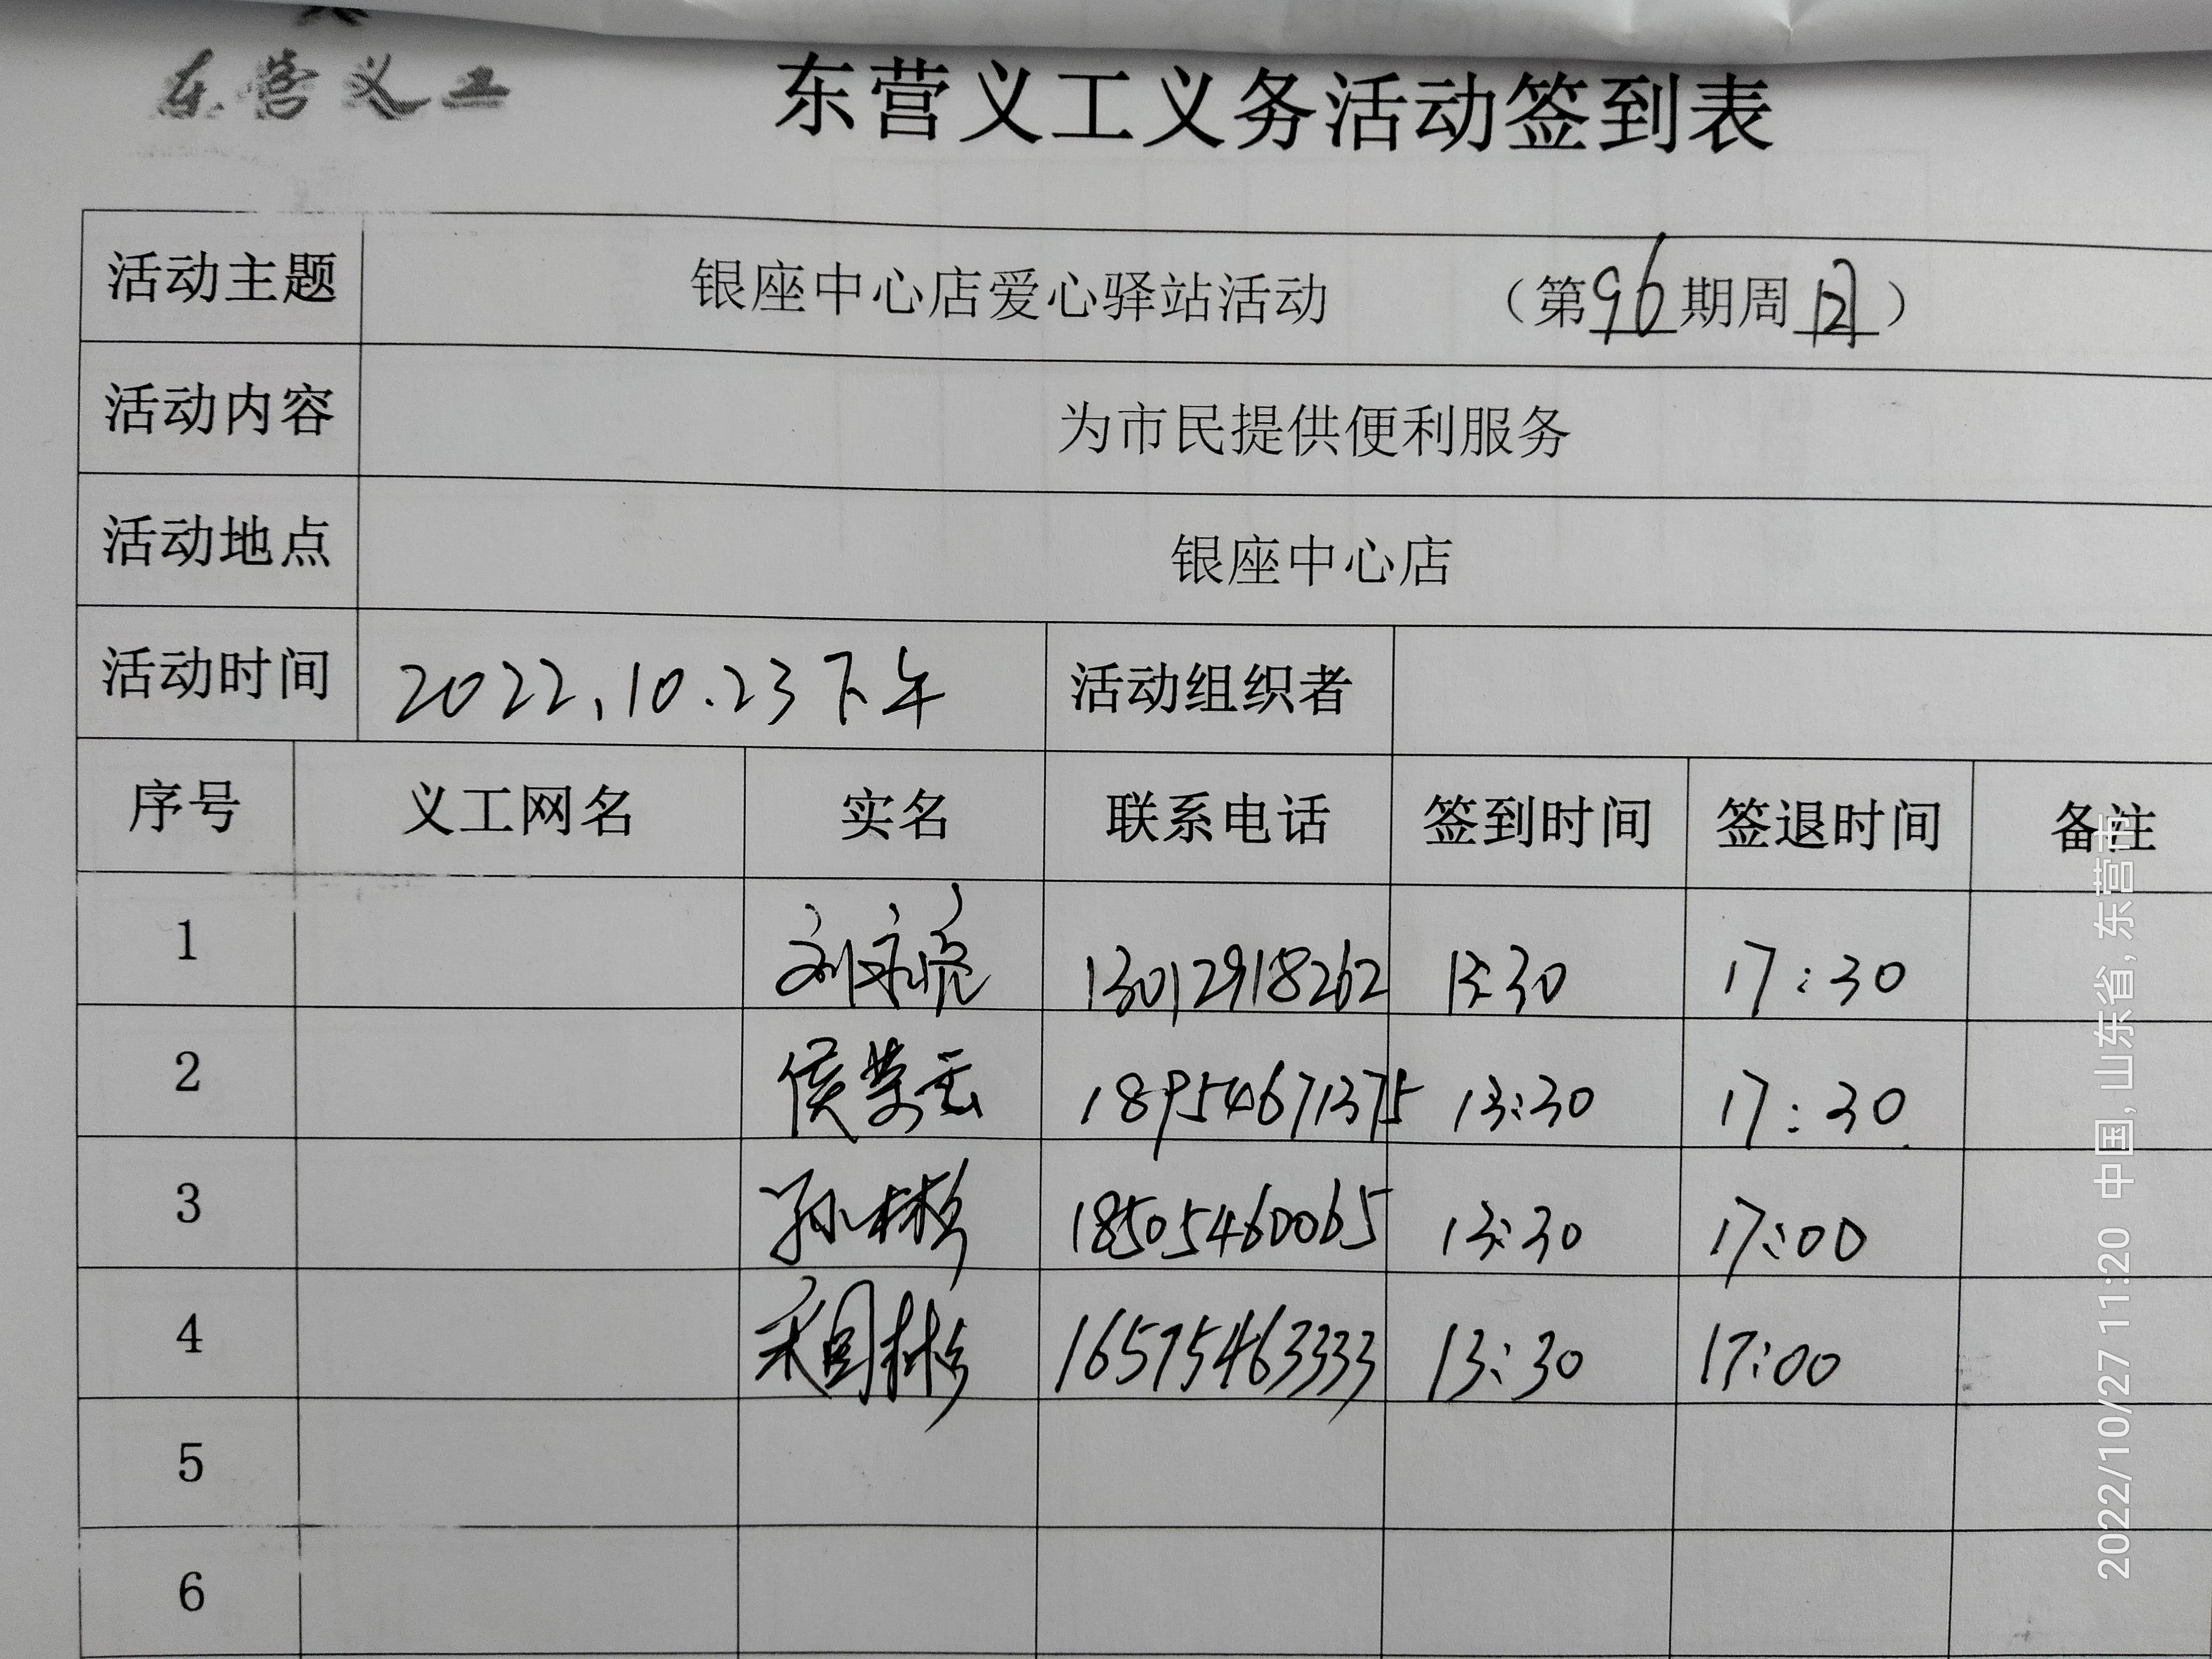 东营义工
东营义工义务活动签到表
活动主题 银座中心店爱心驿站活动 （第96期周日）
活动内容 为市民提供便利服务
活动地点 银座中心店
活动时间 2022.10.23下午 活动组织者
序号 义工网名 实名 联系电话 签到时间 签退时间 备注
1 刘永亮 13012918262 13:30 17:30
2 侯荣云 18954671375 13:30 17:30
3 孙彬彬 18505460065 13:30 17:00
4 16575463333 13:30 17:00
5
6
2022/10/27 11:20 中国,山东省,东营市